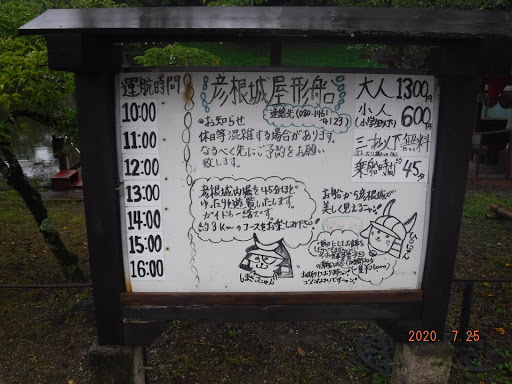 運航時間
10:00
11:00
12:00
13:00
14:00
15:00
16:00
彦根城屋形船
連絡先(080-1461
-4123)
◎お知らせ
休日等混雑する場合があります。
なるべく先にご予約をお願い
致します。
大人 1300円
小人 600円
(小学生以下)
三才以下 無料
乗船時間 45分
彦根城内堀を45分ほど
ゆったり遊覧いたします。
ガイドも一緒です。
約3Kmのコースをお楽しみ下さい!
お船から彦根城が
美しく見えるニャン
しまさこにゃん
ひこにゃん
2020. 7.25